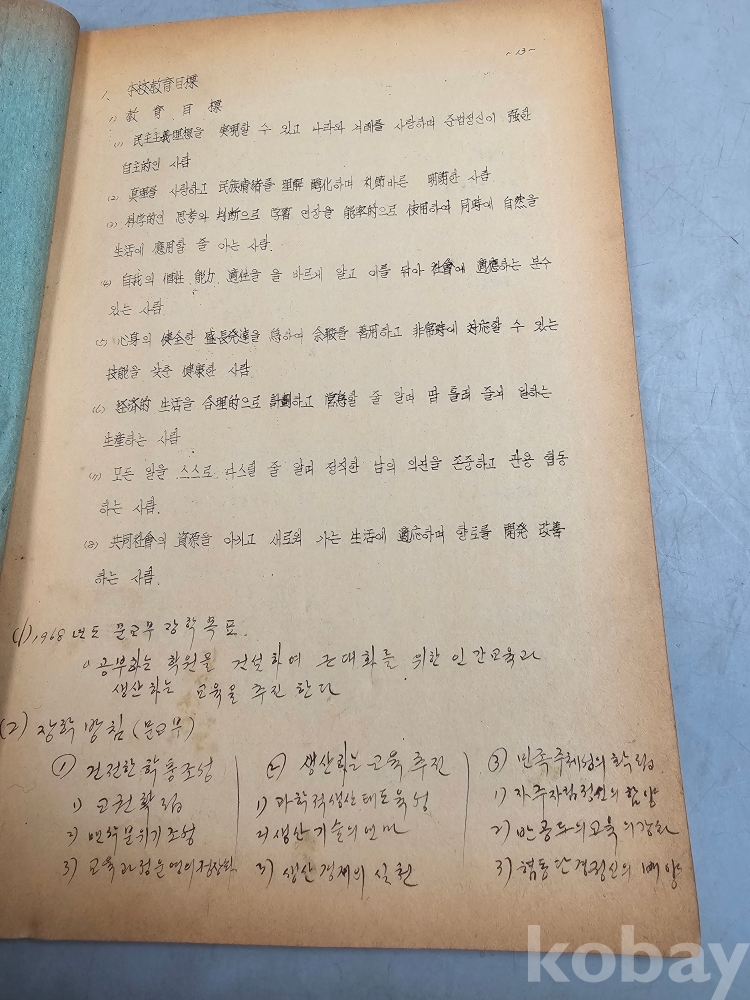 -13-
1. 学校教育目標
1) 教育目標
(1) 民主主義理想을 実現할 수 있고 나라와 겨레를 사랑하며 준법정신이 强한
自主的인 사람
(2) 真理를 사랑하고 民族情緒를 理解 醇化하며 礼節바른 明朗한 사람.
(3) 科学的인 思考와 判断으로 学習 연장을 能率的으로 使用하여 同時에 自然을
生活에 應用할 줄 아는 사람.
(4) 自我의 個性 能力 適性을 올 바르게 알고 이를 닦아 社會에 適應하는 분수
있는 사람
(5) 心身의 健全한 盛長発達을 하여 余暇를 善用하고 非常時에 対応할 수 있는
技能을 갖춘 健康한 사람
(6) 経済的 生活을 合理的으로 計劃하고 営為할 줄 알며 땀 흘려 즐겨 일하는
生産하는 사람
(7) 모든 일을 스스로 다스릴 줄 알며 정직한 남의 의견을 존중하고 관용 협동
하는 사람.
(8) 共同社會의 資源을 아끼고 새로워 가는 生活에 適応하며 향토를 開発 改善
하는 사람.
(1) 1968년도 문교부 장학목표.
○ 공부하는 학원을 건설하여 근대화를 위한 인간교육과
생산하는 교육을 추진 한다
(2) 장학 방침 (문교부)
① 건전한 학풍조성
1) 교권확립
2) 면학분위기조성
3) 교육과정운영의정상화
② 생산하는 교육 추진
1) 과학적생산태도육성
2) 생산기술의연마
3) 생산경제의 실천
③ 민족주체성의 확립
1) 자주자립정신의 함양
2) 반공도의교육의강화
3) 협동단결정신의 배양
kobay